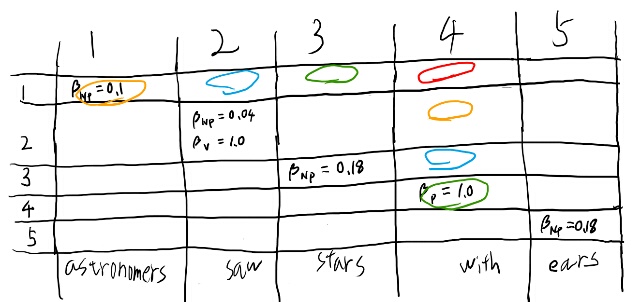 1 2 3 4 5
1 βNP = 0.1
βNP = 0.04
2 βV = 1.0
3 βNP = 0.18
4 βP = 1.0
5 βNP = 0.18
astronomers saw stars with ears